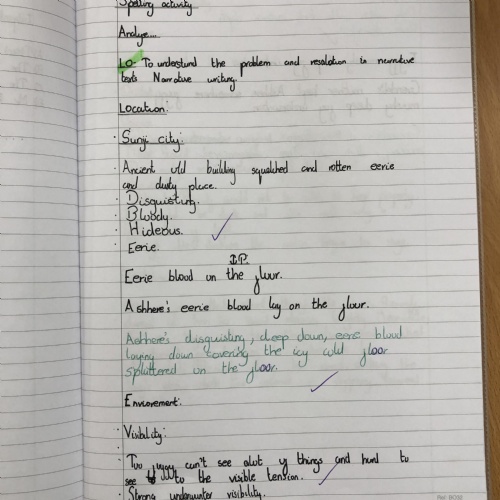 Spelling activity
Analyse....
LO- To understand the problem and resolution in narrative
texts Narrative writing.
Location:
· Sunji city:
· Ancient old building squatched and rotten eerie
and dusty place.
· Disguisting.
· Bloody.
· Hideous.
· Eerie.
I.P.
Eerie blood on the floor.
Ashhere's eerie blood lay on the floor.
Ashhere's disgusting, deep down, eerie blood
laying down covering the icy cold floor
spluttered on the floor.
Enviorement:
· Visibility:
· Too foggy can't see alot of things and hard to
see to the visible tension.
· Strong underwater visibility.